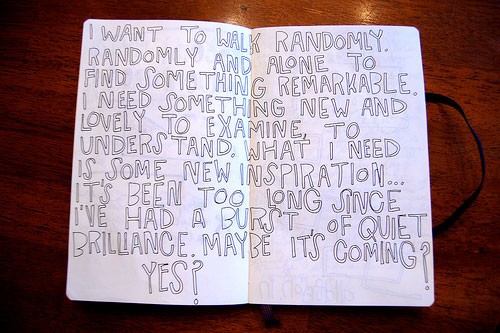 I WANT TO WALK RANDOMLY.
RANDOMLY AND ALONE TO
FIND SOMETHING REMARKABLE.
I NEED SOMETHING NEW AND
LOVELY TO EXAMINE, TO
UNDERSTAND. WHAT I NEED
IS SOME NEW INSPIRATION...
IT'S BEEN TOO LONG SINCE
I'VE HAD A BURST OF QUIET
BRILLIANCE. MAYBE IT'S COMING?
YES?